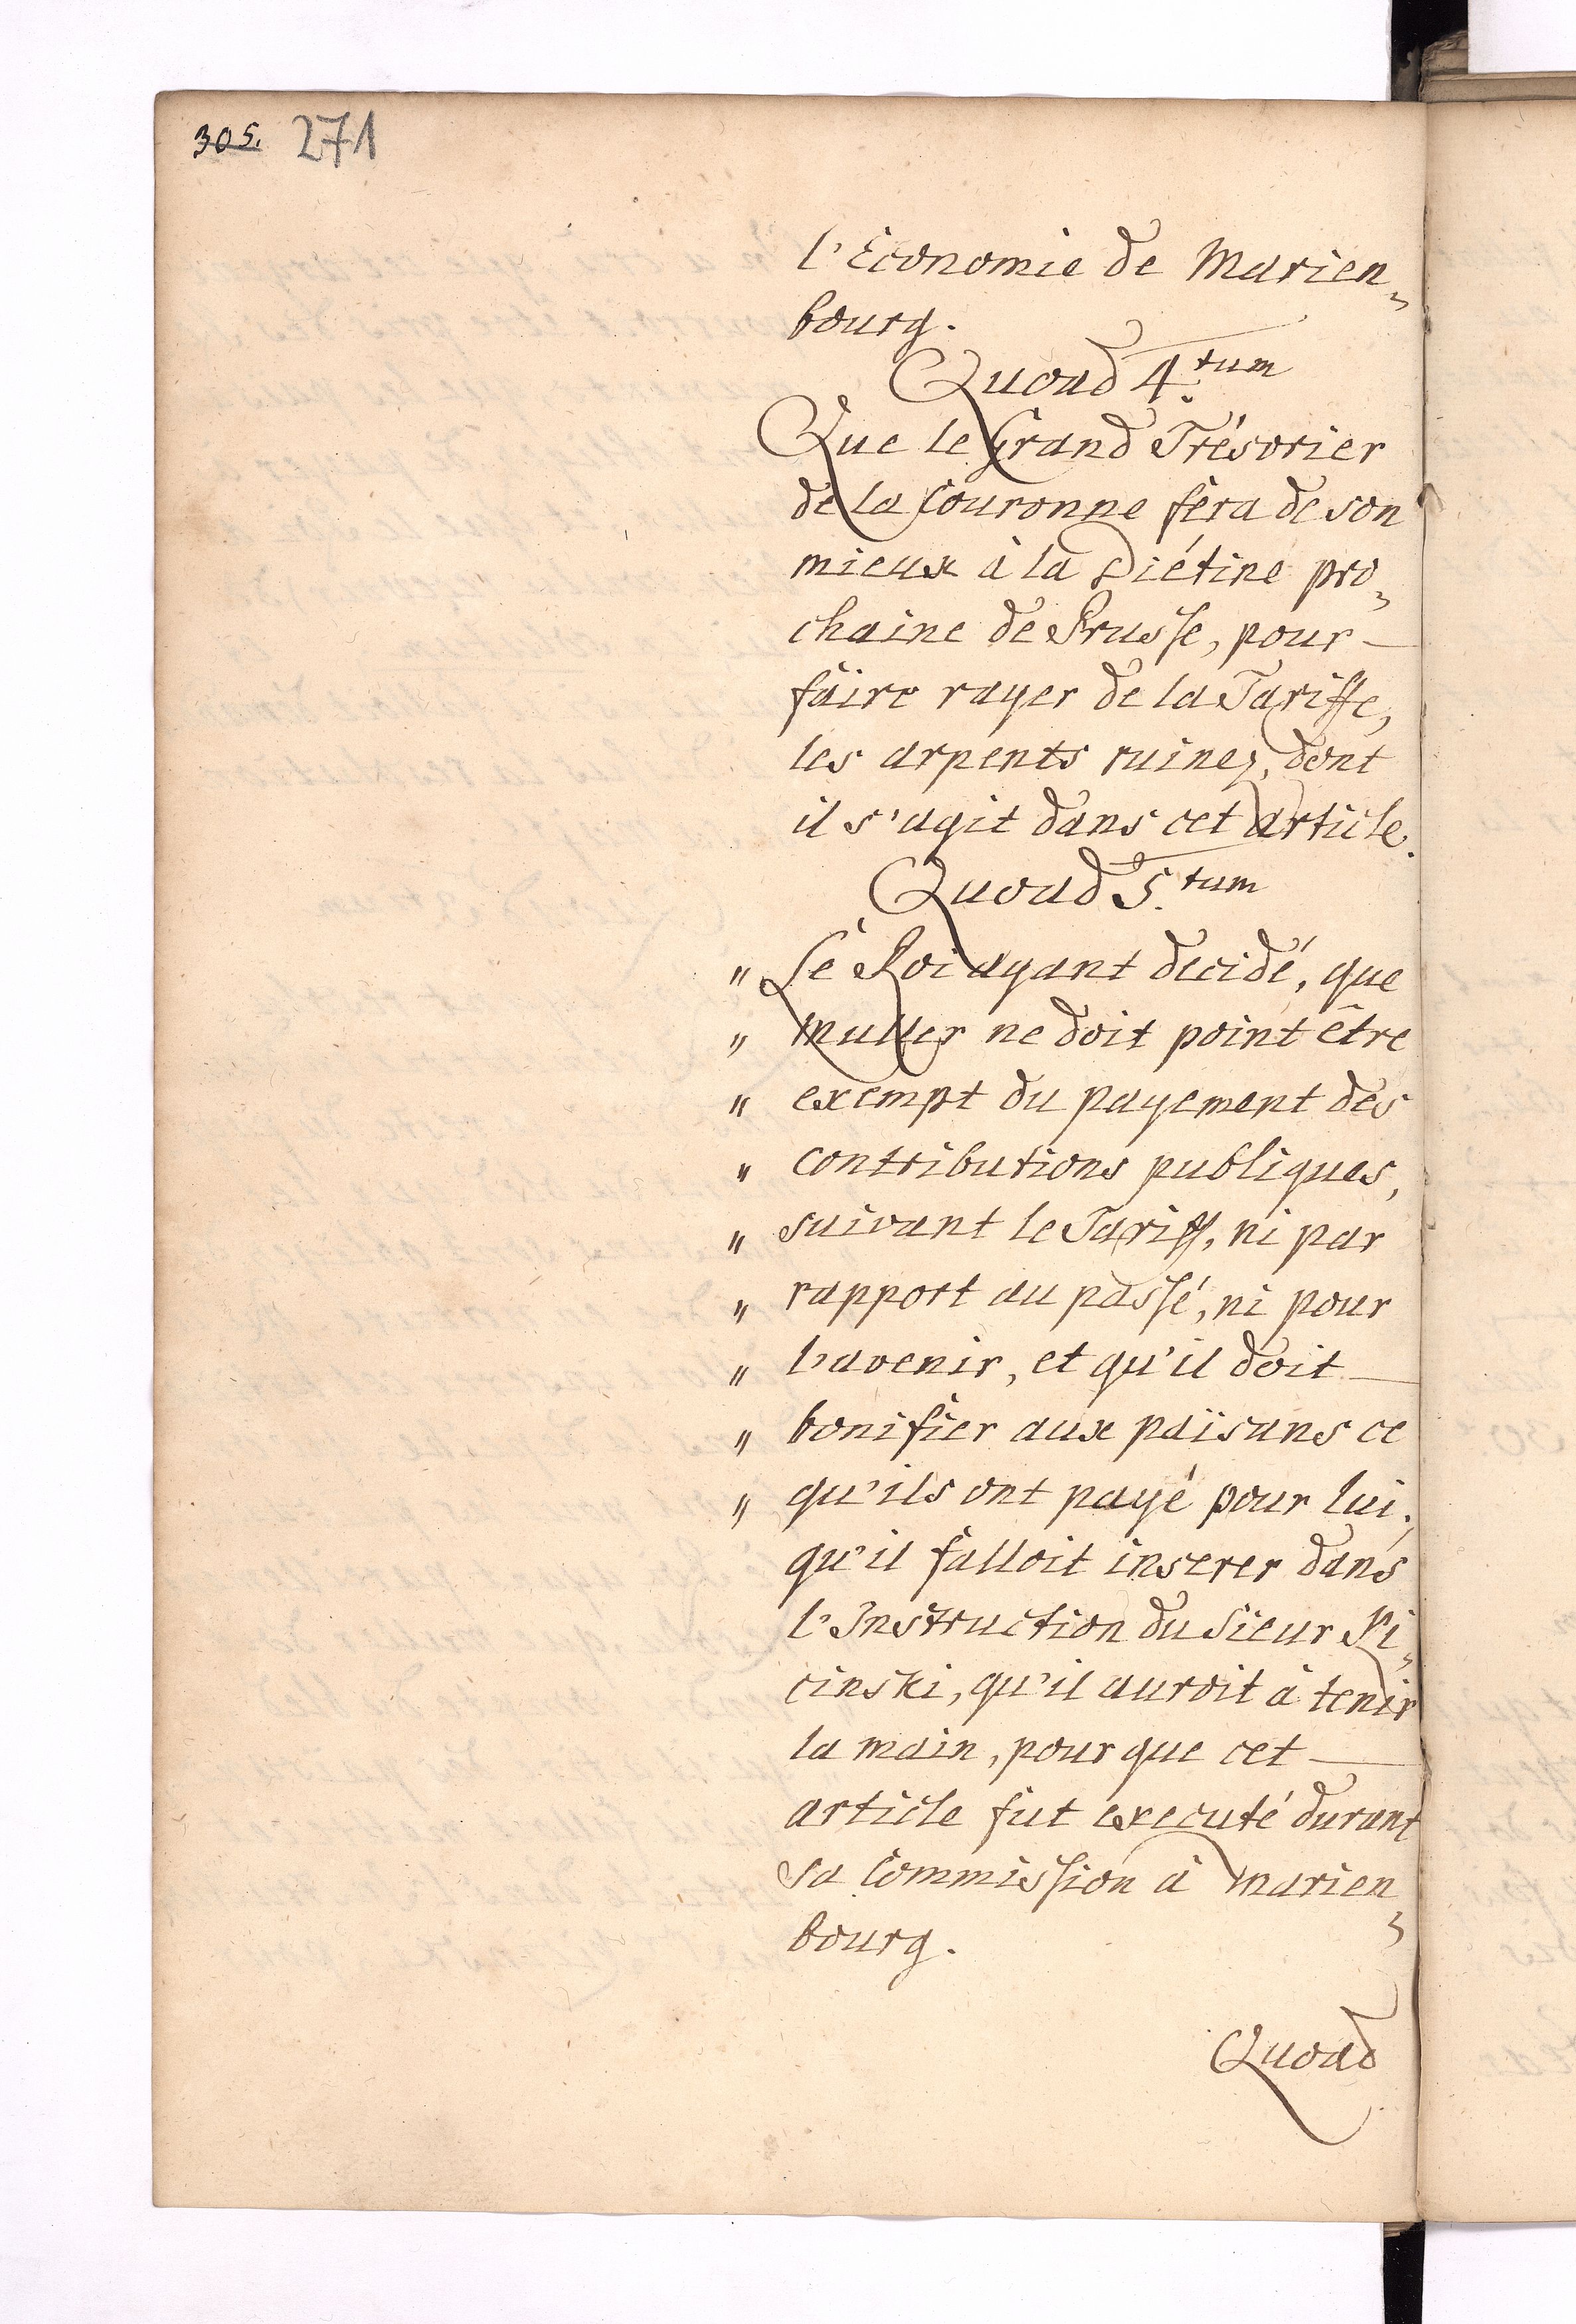 305. 271
l'Economie de Marien„
bourg.
Quoad 4.tum
Que le Grand Trésorier
de la Couronne fera de son
mieux à la Diétine pro„
chaine de Prusse, pour —
faire rayer de la Tariffe,
les arpents ruinez, dont
il s'agit dans cet article.
Quoad 5.tum
„ Le Roi ayant decidé, que
„ Muller ne doit point être
„ exempt du payement des
„ contributions publiques,
„ suivant le Tariff, ni par
„ rapport au passé, ni pour
„ l'avenir, et qu'il doit —
„ bonifier aux païsans ce
„ qu'ils ont payé pour lui.
qu'il falloit inserer dans
l'Instruction du Sieur Pi„
cinski, qu'il auroit à tenir
la main, pour que cet —
article fut executé durant
sa Commission à Marien„
bourg.
Quoad